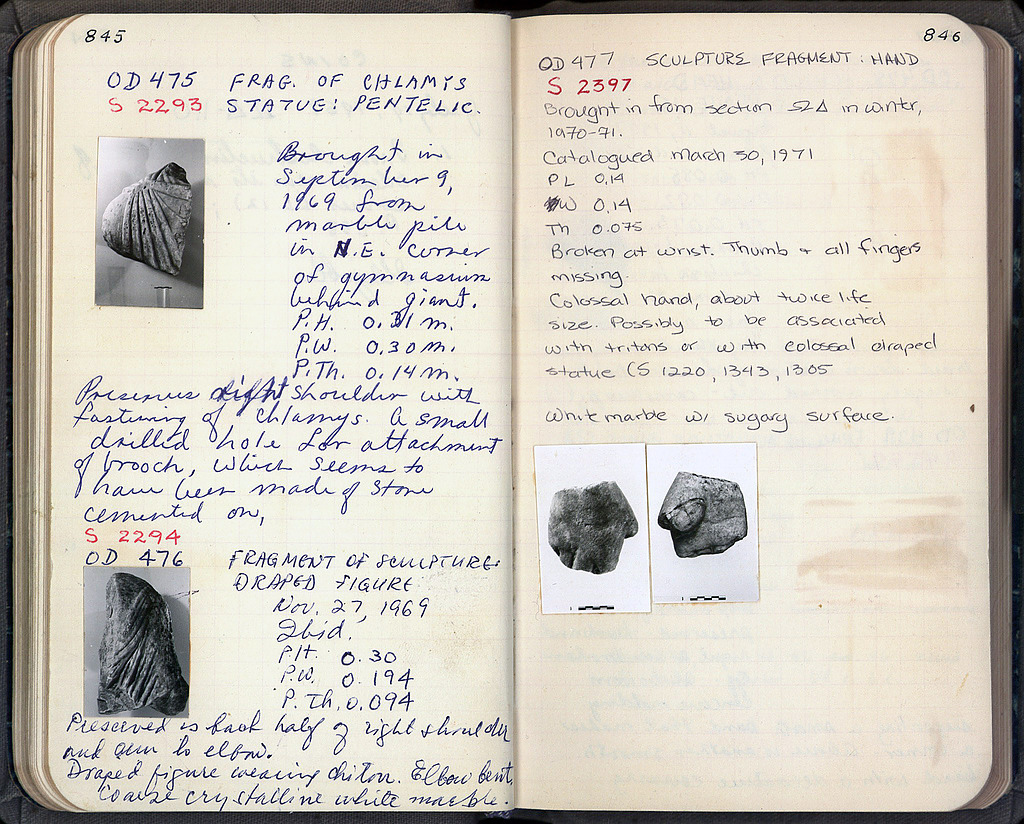 845
OD 475 FRAG. OF CHLAMYS
S 2293 STATUE: PENTELIC.
Brought in
September 9,
1969 from
marble pile
in N.E. corner
of gymnasium
behind giant.
P.H. 0.31 m.
P.W. 0.30 m.
P.Th. 0.14 m.
Preserves right shoulder with
fastening of chlamys. A small
drilled hole for attachment
of brooch, which seems to
have been made of stone
cemented on,
S 2294
OD 476 FRAGMENT OF SCULPTURE:
DRAPED FIGURE
Nov. 27, 1969
Ibid.
P.H. 0.30
P.W. 0.194
P. Th. 0.094
Preserved is back half of right shoulder
and arm to elbow.
Draped figure wearing chiton. Elbow bent.
Coarse crystalline white marble.
846
OD 477 SCULPTURE FRAGMENT: HAND
S 2397
Brought in from section ΩΔ in winter,
1970-71.
Catalogued March 30, 1971
PL 0.14
W 0.14
Th 0.075
Broken at wrist. Thumb + all fingers
missing.
Colossal hand, about twice life
size. Possibly to be associated
with tritons or with colossal draped
statue (S 1220, 1343, 1305
White marble w/ sugary surface.